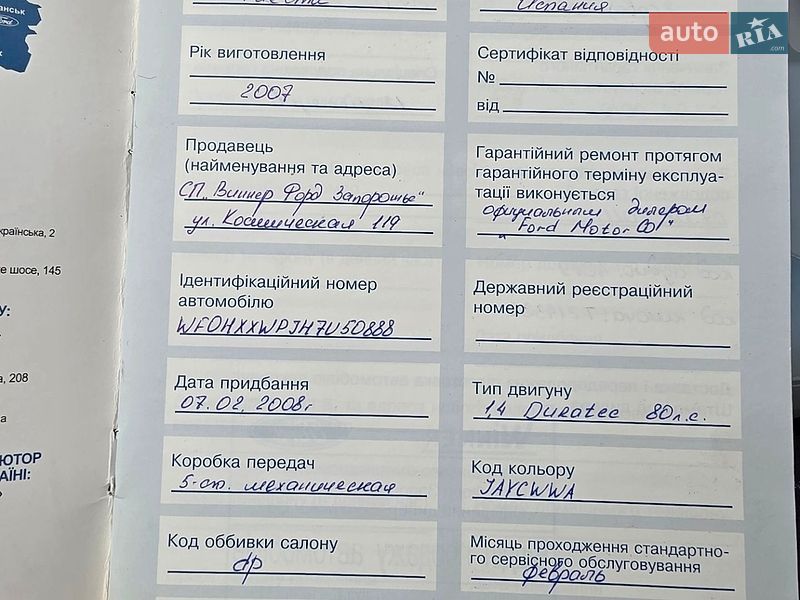 анськ
Ford
країнська, 2
е шосе, 145
У:
а, 208
ЮТОР
АЇНІ:
Испания
auto RIA .com
Рік виготовлення
2007
Продавець
(найменування та адреса)
СП „Виннер Форд Запорожье"
ул. Космическая 119
Ідентифікаційний номер
автомобілю
WF0HXXWPJH7U50888
Дата придбання
07.02.2008г
Коробка передач
5-ст. механическая
Код оббивки салону
Сертифікат відповідності
№
від
Гарантійний ремонт протягом
гарантійного терміну експлуа-
тації виконується
официальным дилером
"Ford Motor Co"
Державний реєстраційний
номер
Тип двигуну
1,4 Duratec 80л.с.
Код кольору
JAYCWWA
Місяць проходження стандартно-
го сервісного обслуговування
февраль